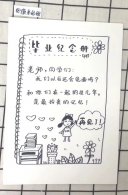 毕业纪念册
老师、同学们:
我们以后还会见面吗?
和你们在一起的这几年,
是最珍贵的记忆!
再见!!